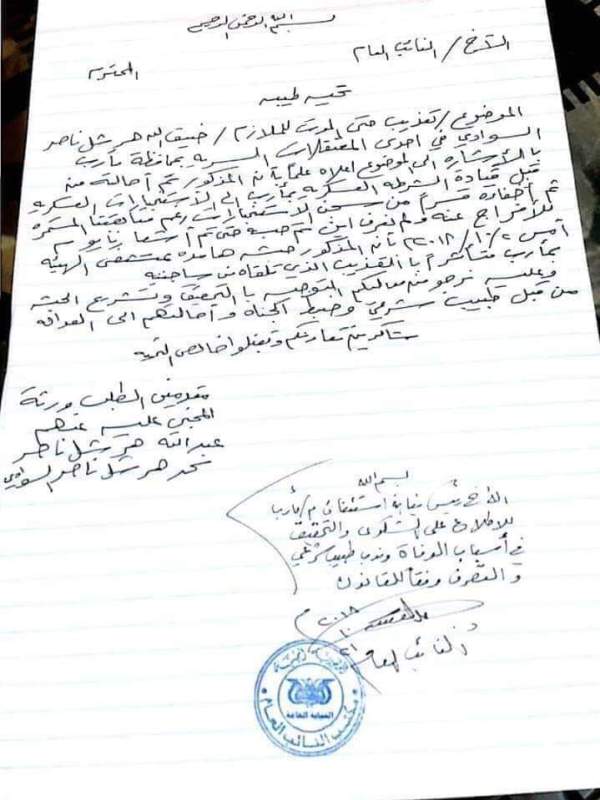 بسم الله الرحمن الرحيم
الأخ / النائب العام المحترم
تحية طيبه
الموضوع / تعذيب حتى الموت للملازم / ضيف الله هرشل ناصر
السوادي في احدى المعتقلات السريه بمحافظة مأرب
بالأشاره الى الموضوع اعلاه علماً بأنه المذكور تم أحالته من
قبل قيادة الشرطه العسكريه بمأرب الى الاستخبارات العسكريه
ثم أخفائه قسراً من سجن الاستخبارات رغم متابعتنا المستمره
للأفراج عنه ولم نعرف اين تم حبسه حتى تم أشعارنا يوم
أمس ٢/١٠/٢٠١٨م بأنه المذكور جثه هامده بمستشفى الهيئه
بمأرب متأثراً بالتعذيب الذي تلقاه من ساجنيه
وعليه نرجو من معاليكم التوجيه بالتحقيق وتشريح الجثه
من قبل طبيب شرعي وضبط الجناه وأحالتهم الى العداله
شاكرين تعاونكم وتقبلو خالص التحيه
مقدمين الطلب ورثة
المجني عليه عنهم
عبدالله هرشل ناصر
هرشل ناصر السوادي
بسم الله
الأخ رئيس نيابة استئناف م/مأرب
للاطلاع على الشكوى والتحقيق
في أسباب الوفاة وندب طبيب شرعي
والتصرف وفقاً للقانون
النائب العام
النيابة العامة
مكتب النائب العام